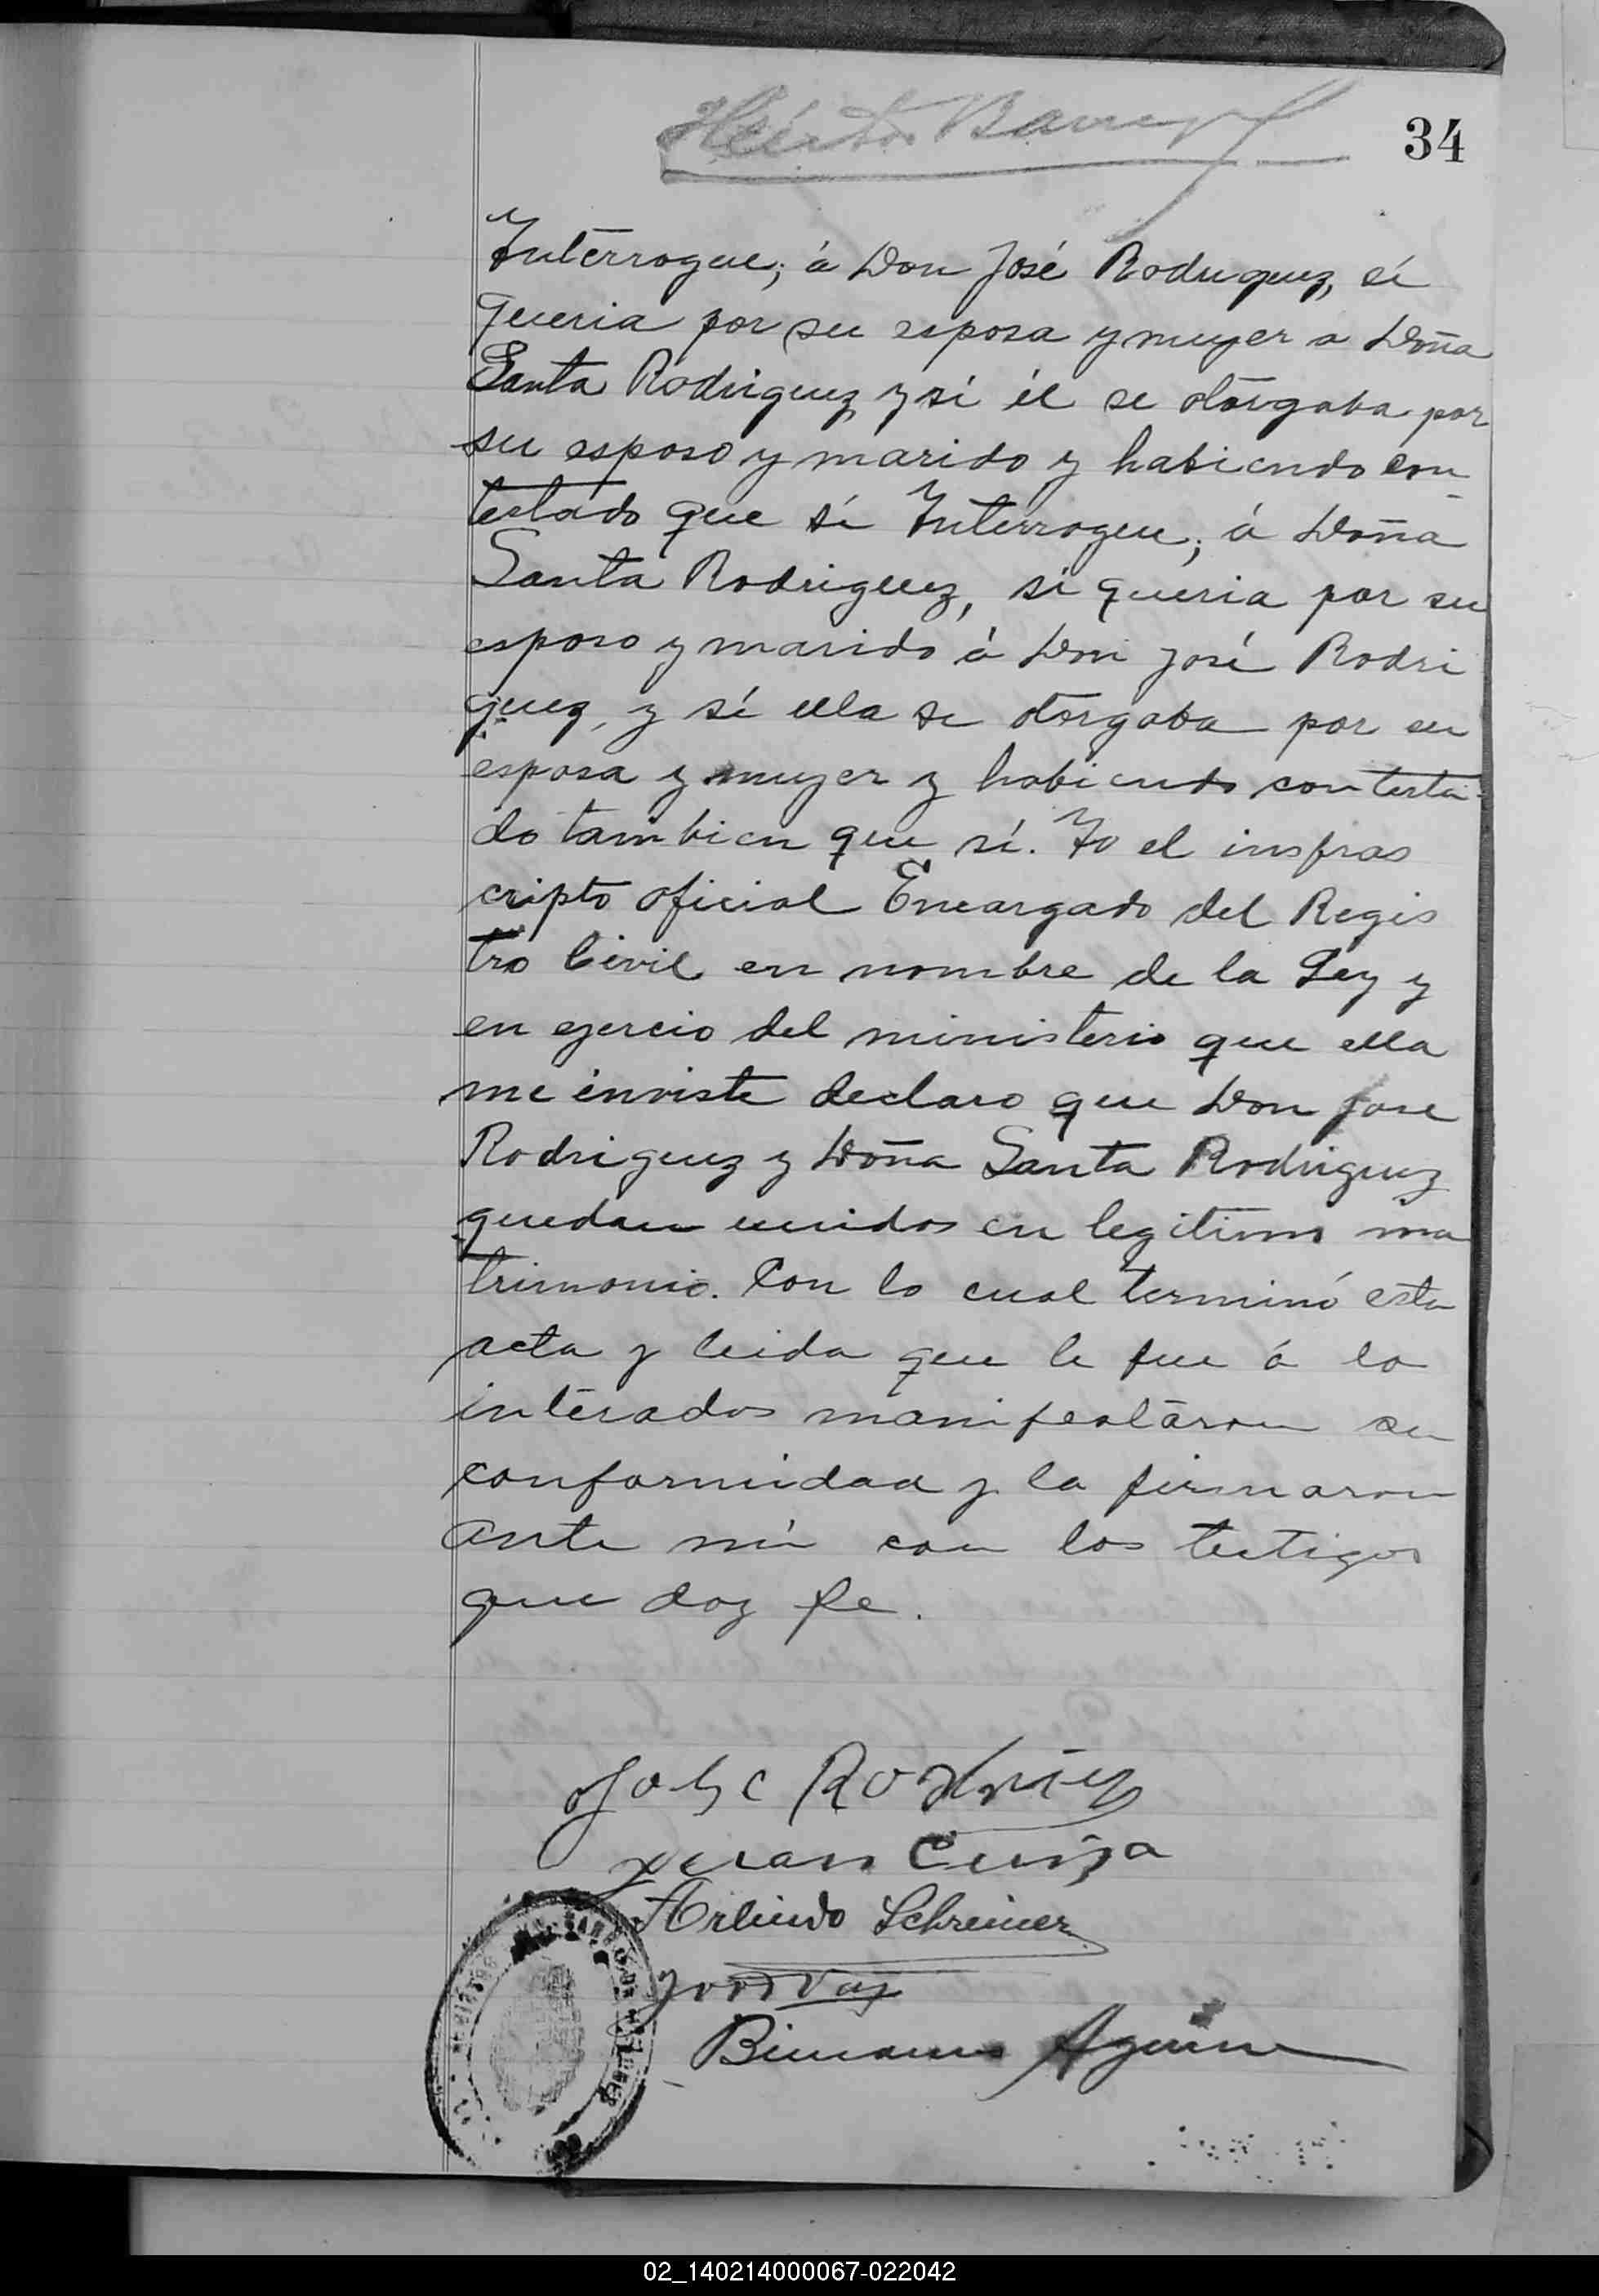 34
Interrogue; á Don José Rodriguez, sí
queria por su esposa y muger a Doña
Santa Rodriguez y si él se otorgaba por
su esposo y marido y habiendo con
testado que sí Interrogue; á Doña
Santa Rodriguez, si queria por su
esposo y marido á Don José Rodri
guez, y sí ella se otorgaba por su
esposa y mujer y habiendo contesta-
do tambien que sí. Yo el insfras
cripto oficial Encargado del Regis
tro Civil en nombre de la Ley y
en ejercio del ministerio que ella
me inviste declaro que Don Jose
Rodriguez y Doña Santa Rodriguez
quedan unidos en legitimo ma
trimonio. Con lo cual terminó esta
acta y leida que le fue á lo
interados manifestaron su
conformidad y la firmaron
ante mí con los testigos
que doy fe.
Jose
Arlindo Schreiner
02_140214000067-022042